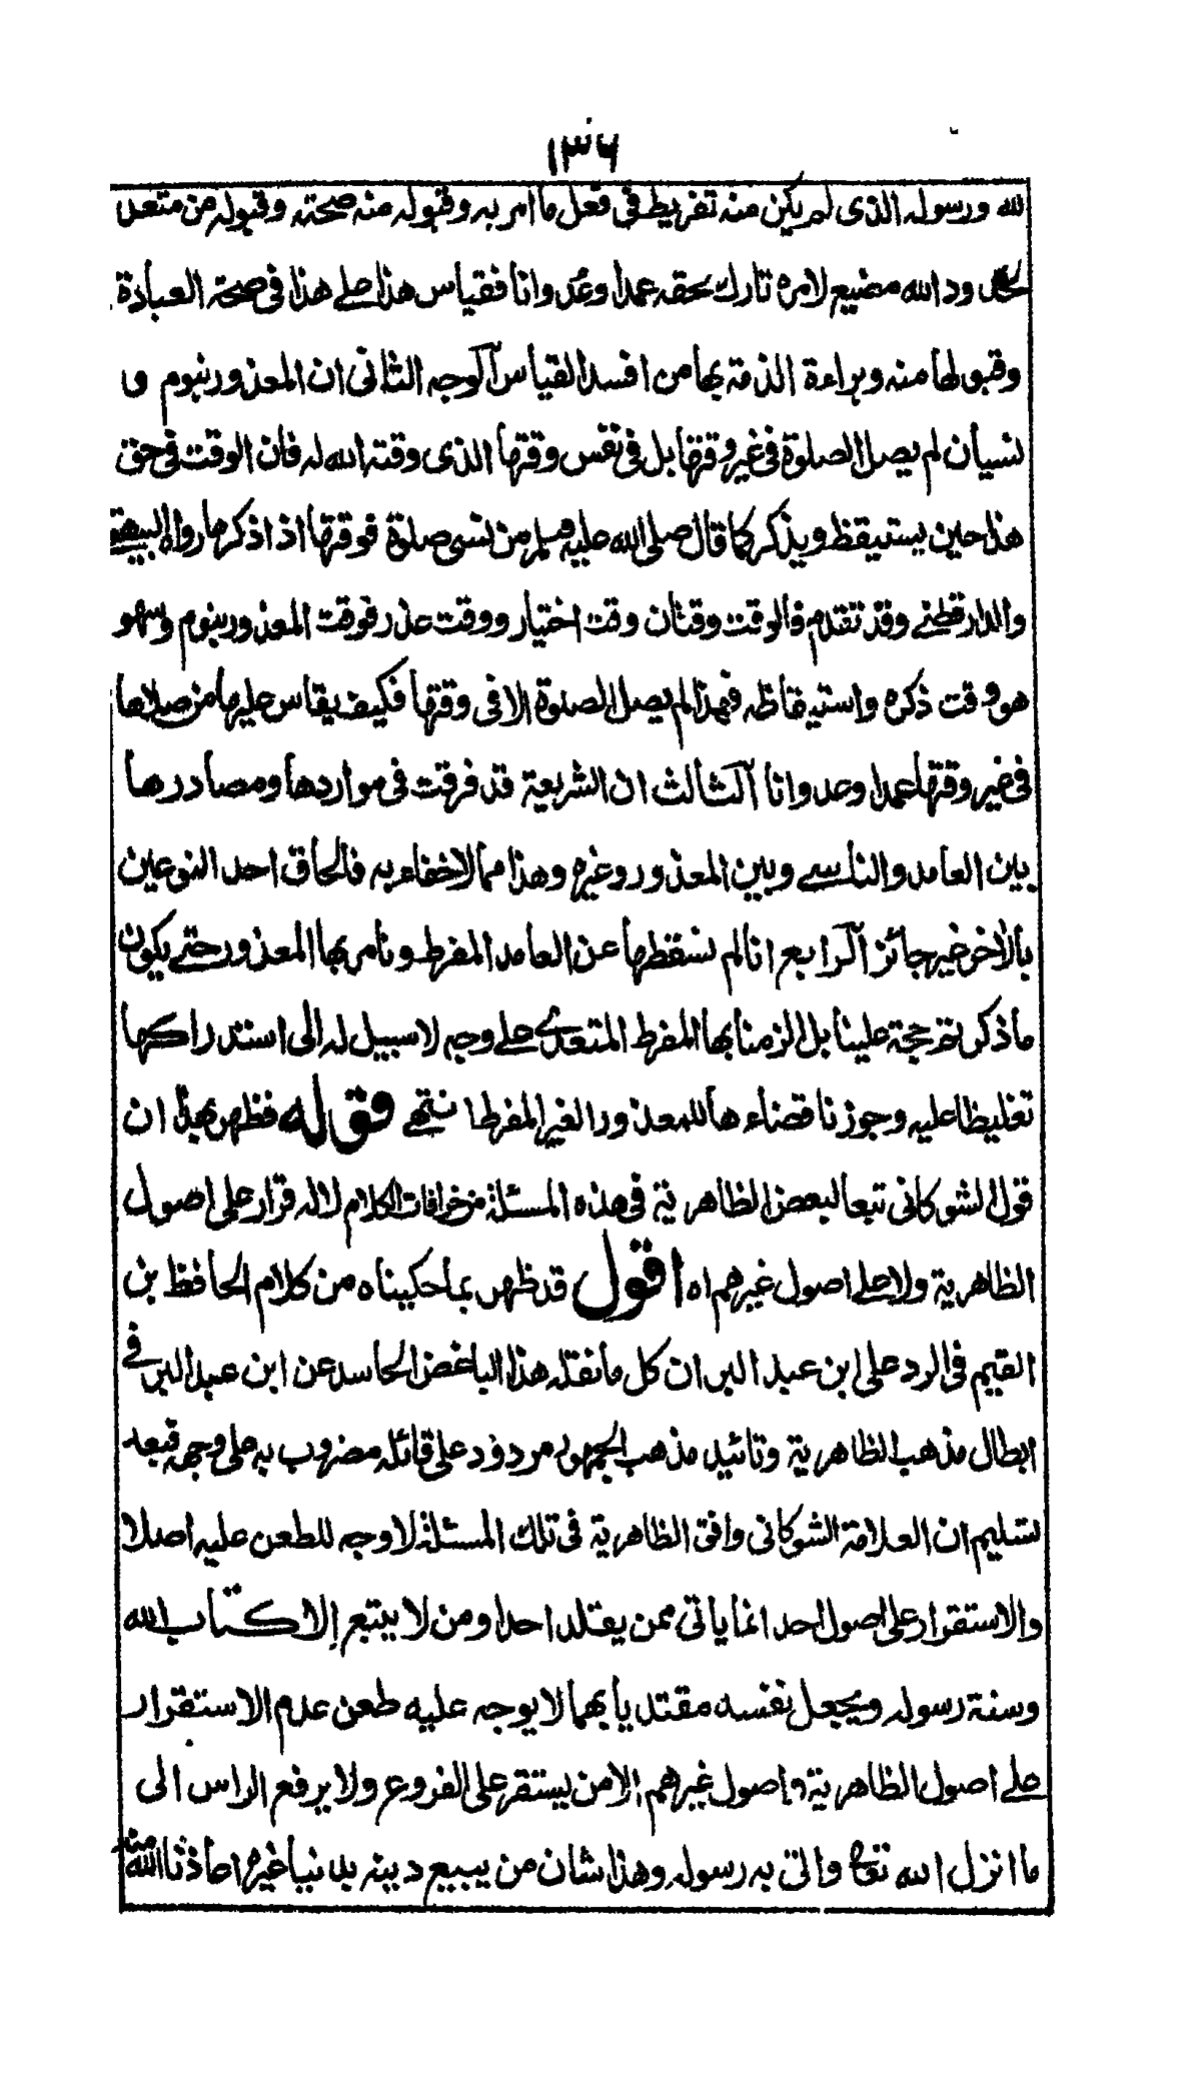 ١٣٦
لله ورسوله الذى لم يكن منه تفريط فى فعل ما امر به وقبوله منه صحته وقبوله من متعد
لحدود الله مضيع لامره تارك بحقه عمدا وعدوانا فقياس هذا على هذا فى صحة العبادة
وقبولها منه وبراءة الذمة بها من افسد القياس آلوجه الثانى ان المعذور بنوم و
نسيان لم يصل الصلوة فى غير وقتها بل فى نفس وقتها الذى وقته الله له فان الوقت فى حق
هذا حين يستيقظ ويذكر كما قال صلى الله عليه وسلم من نسى صلوة فوقتها اذا ذكرها رواه البيهقى
والدارقطنے وقد تقدم فالوقت وقتان وقت اختيار ووقت عذر فوقت المعذور بنوم وسهو
هو وقت ذكره واستيقاظه فهذا لم يصل الصلوة الا فى وقتها فكيف يقاس عليها من صلاها
فى غير وقتها عمدا وعدوانا آلثالث ان الشريعة قد فرقت فى مواردها ومصادرها
بين العامد والناسے وبين المعذور وغيره وهذا مما لاخفاء به فالحاق احد النوعين
بالاخر غير جائز آلرابع انا لم نسقطها عن العامد المفرط ونامر بها المعذور حتے يكون
ما ذكرتم حجة علينا بل الزمنا بها المفرط المتعدے على وجه لا سبيل له الى استدراكها
تغليظا عليه وجوزنا قضاءها للمعذور الغير المفرط انتهى قوله فظهر بهذا ان
قول الشوكانى تبعا لبعض الظاهرية فى هذه المسئلة من خرافات الكلام لا له قرار على اصول
الظاهرية ولا على اصول غيرهم اه اقول قد ظهر بما حكيناه من كلام الحافظ بن
القيم فى الرد على ابن عبد البر ان كل ما نقله هذا الباغض الحاسد عن ابن عبد البر فے
ابطال مذهب الظاهرية وتائيد مذهب الجمهور مردود على قائله مضروب به على وجهه فبعد
تسليم ان العلامة الشوكانى وافق الظاهرية فى تلك المسئلة لا وجه للطعن عليه اصلا
والاستقرار على اصول احد انما ياتى ممن يقلد احدا ومن لا يتبع الا كتاب الله
وسنة رسوله ويجعل نفسه مقتديا بهما لا يوجه عليه طعن عدم الاستقرار
على اصول الظاهرية واصول غيرهم الا من يستقر على الفروع ولا يرفع الراس الى
ما انزل الله تعالى واتى به رسوله وهذا شان من يبيع دينه بدنيا غيره اعاذنا الله منه